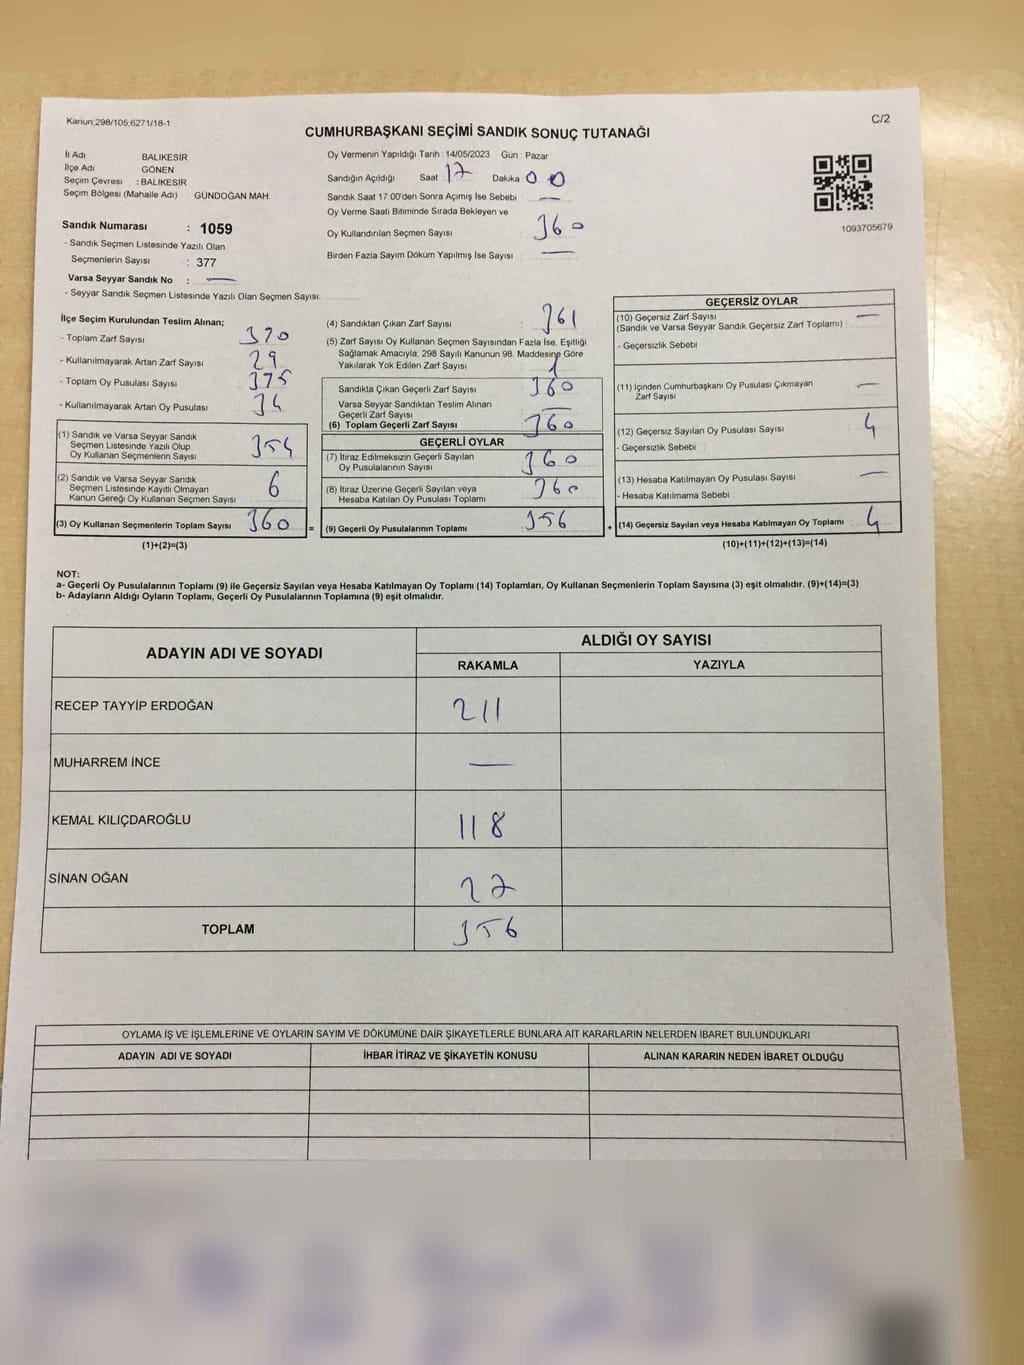 Kanun:298/105;6271/18-1
C/2
CUMHURBAŞKANI SEÇİMİ SANDIK SONUÇ TUTANAĞI
İl Adı BALIKESİR
İlçe Adı GÖNEN
Seçim Çevresi : BALIKESİR
Seçim Bölgesi (Mahalle Adı) GÜNDOĞAN MAH.
Oy Vermenin Yapıldığı Tarih : 14/05/2023 Gün : Pazar
Sandığın Açıldığı Saat 17 Dakika 00
Sandık Saat 17:00'den Sonra Açımış İse Sebebi : —
Oy Verme Saati Bitiminde Sırada Bekleyen ve
Oy Kullandırılan Seçmen Sayısı : 360
Birden Fazla Sayım Döküm Yapılmış İse Sayısı : —
1093705679
Sandık Numarası : 1059
- Sandık Seçmen Listesinde Yazılı Olan
Seçmenlerin Sayısı : 377
Varsa Seyyar Sandık No : —
- Seyyar Sandık Seçmen Listesinde Yazılı Olan Seçmen Sayısı:
İlçe Seçim Kurulundan Teslim Alınan;
- Toplam Zarf Sayısı 370
- Kullanılmayarak Artan Zarf Sayısı 29
- Toplam Oy Pusulası Sayısı 375
- Kullanılmayarak Artan Oy Pusulası 34
(1) Sandık ve Varsa Seyyar Sandık
Seçmen Listesinde Yazılı Olup
Oy Kullanan Seçmenlerin Sayısı 354
(2) Sandık ve Varsa Seyyar Sandık
Seçmen Listesinde Kayıtlı Olmayan
Kanun Gereği Oy Kullanan Seçmen Sayısı 6
(3) Oy Kullanan Seçmenlerin Toplam Sayısı 360 =
(1)+(2)=(3)
(4) Sandıktan Çıkan Zarf Sayısı : 361
(5) Zarf Sayısı Oy Kullanan Seçmen Sayısından Fazla İse, Eşitliği
Sağlamak Amacıyla; 298 Sayılı Kanunun 98. Maddesine Göre
Yakılarak Yok Edilen Zarf Sayısı : 1
Sandıkta Çıkan Geçerli Zarf Sayısı 360
Varsa Seyyar Sandıktan Teslim Alınan
Geçerli Zarf Sayısı —
(6) Toplam Geçerli Zarf Sayısı 360
GEÇERLİ OYLAR
(7) İtiraz Edilmeksizin Geçerli Sayılan
Oy Pusulalarının Sayısı 360
(8) İtiraz Üzerine Geçerli Sayılan veya
Hesaba Katılan Oy Pusulası Toplamı 360
(9) Geçerli Oy Pusulalarının Toplamı 356 +
GEÇERSİZ OYLAR
(10) Geçersiz Zarf Sayısı —
(Sandık ve Varsa Seyyar Sandık Geçersiz Zarf Toplamı) :
- Geçersizlik Sebebi :
(11) İçinden Cumhurbaşkanı Oy Pusulası Çıkmayan
Zarf Sayısı —
(12) Geçersiz Sayılan Oy Pusulası Sayısı 4
- Geçersizlik Sebebi :
(13) Hesaba Katılmayan Oy Pusulası Sayısı —
- Hesaba Katılmama Sebebi
(14) Geçersiz Sayılan veya Hesaba Katılmayan Oy Toplamı 4
(10)+(11)+(12)+(13)=(14)
NOT:
a- Geçerli Oy Pusulalarının Toplamı (9) ile Geçersiz Sayılan veya Hesaba Katılmayan Oy Toplamı (14) Toplamları, Oy Kullanan Seçmenlerin Toplam Sayısına (3) eşit olmalıdır. (9)+(14)=(3)
b- Adayların Aldığı Oyların Toplamı, Geçerli Oy Pusulalarının Toplamına (9) eşit olmalıdır.
ADAYIN ADI VE SOYADI ALDIĞI OY SAYISI
RAKAMLA YAZIYLA
RECEP TAYYİP ERDOĞAN 211
MUHARREM İNCE —
KEMAL KILIÇDAROĞLU 118
SİNAN OĞAN 27
TOPLAM 356
OYLAMA İŞ VE İŞLEMLERİNE VE OYLARIN SAYIM VE DÖKÜMÜNE DAİR ŞİKAYETLERLE BUNLARA AİT KARARLARIN NELERDEN İBARET BULUNDUKLARI
ADAYIN ADI VE SOYADI İHBAR İTİRAZ VE ŞİKAYETİN KONUSU ALINAN KARARIN NEDEN İBARET OLDUĞU